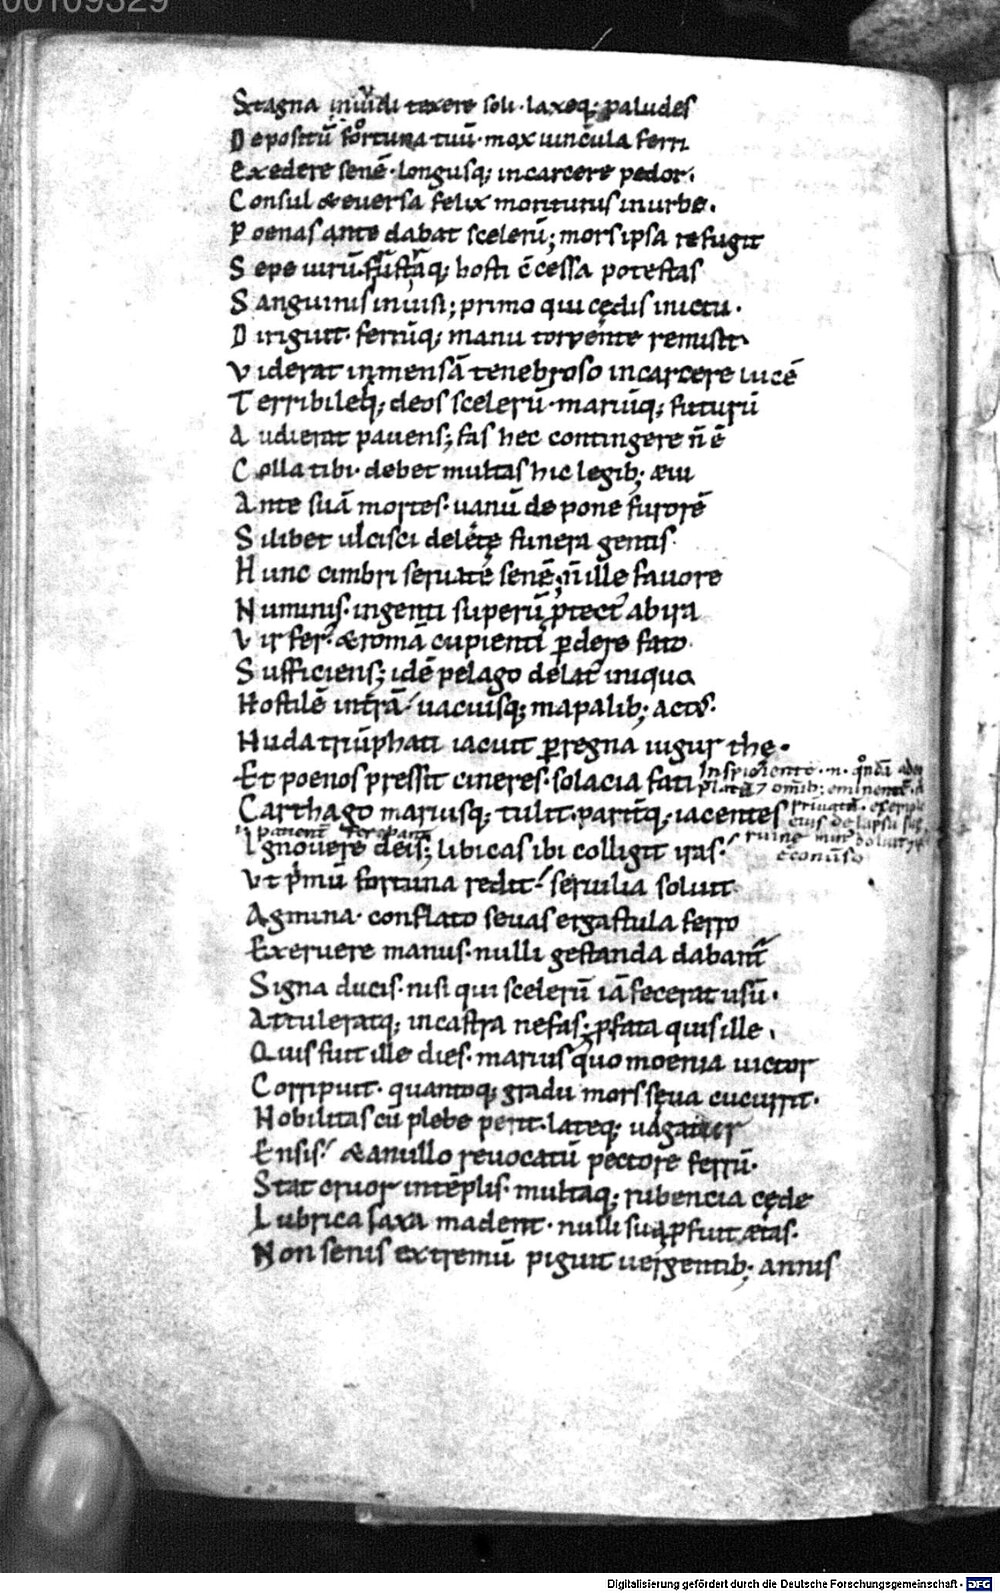 00109329
Stagna inuidi texere soli· laxeq; paludes
Depositū fortuna tuū· mox uincula ferri
Exedere senē· longusq; incarcere pedor·
Consul & euersa felix moriturus inurbe·
Poenas ante dabat scelerū; mors ipsa refugit
Sepe uirū· frustāq; hosti c̄cessa potestas
Sanguinis inuisi; primo qui cędis inictu·
Diriguit· ferrūq; manu torpente remisit·
Viderat inmensā tenebroso incarcere lucē
Terribileq; deos scelerū· mariūq; futurū
Audierat pauens; fas hec contingere n̄ ē
Colla tibi· debet multas hic legib; æui
Ante suā mortes· uanū depone furorē
Si libet ulcisci deletę funera gentis·
Hunc cimbri seruate senē; n̄ ille fauore
Numinis· ingenti superū p̄tect' abira
Vir fer'· & romā cupienti ꝑdere fato·
Sufficiens; idē pelago delat' iniquo
Hostilē intrā· uacuisq; mapalib; act'·
Nuda triūphati iacuit ꝑ regna iugurthę·
Et poenos pressit cineres· solacia fati
Carthago mariusq; tulit· parit̄q; iacentes
Ignouere deis; libicas ibi colligit iras·
Vt p̄mū fortuna redit· seruilia soluit
Agmina· conflato seuas ergastula ferro
Exeruere manus· nulli gestanda dabant̄
Signa ducis· nisi qui scelerū iā fecerat usū·
Attuleratq; incastra nefas; ꝓ fata quis ille·
Quis fuit ille dies· marius quo moenia uictor
Corripuit· quantoq; gradu mors sęua cucurrit·
Nobilitas cū plebe perit· lateq; uagatur
Ensis· & anullo reuocatū pectore ferrū·
Stat cruor intēplis· multaq; rubencia cęde
Lubrica saxa madent· nulli sua ꝓfuit ætas·
Non senis extremū piguit uergentib; annis
Digitalisierung gefördert durch die Deutsche Forschungsgemeinschaft - DFG